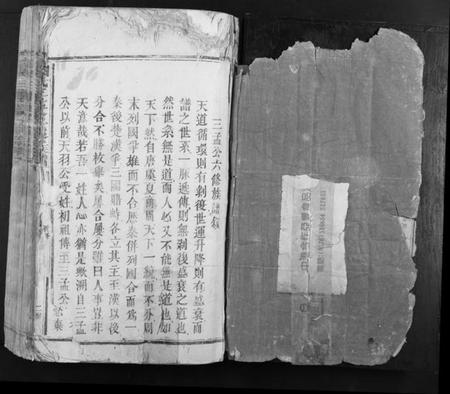 三孟公六修族譜敘
天道循環則有剝復世運升降則有盛衰而
譜之世系一脉遞傳則無剝復盛衰之道也
然世系無是道而人必又不能無是道也如
天下然自唐虞夏商周天下一統而不分則
末列國爭雄而不合歷秦併列國合而為一
秦後楚漢爭三國鼎峙各立其主至漢以後
分合不勝枚舉矣屢合屢分雖曰人事豈非
天意哉若吾一姓人心亦猶是與溯自三孟
公以前天羽公受姓初祖傳至三孟公